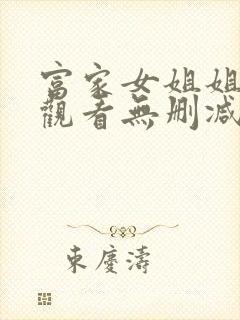 富家女姐姐
觀看無刪減
東慶濤